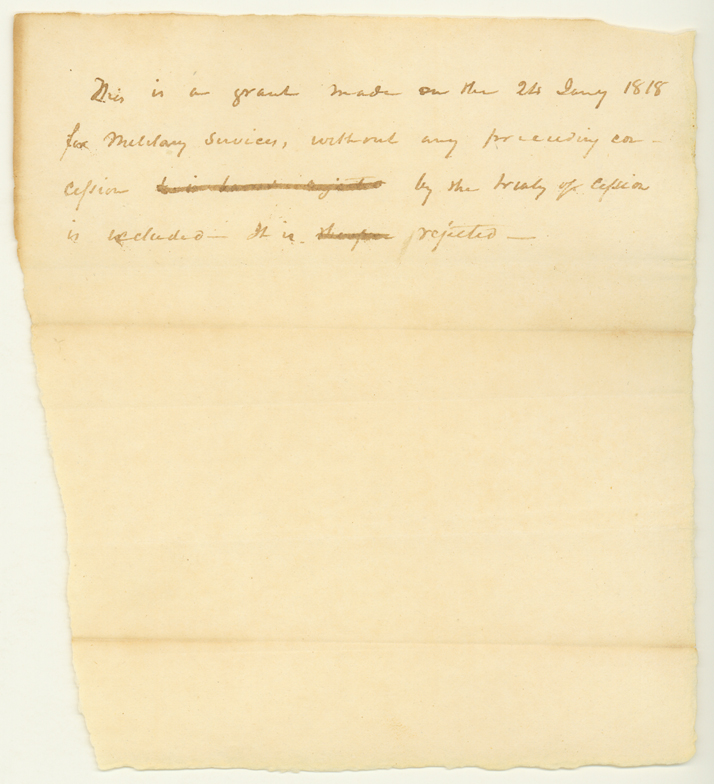 This is a grant made on the 24 Jany 1818
for Military Services, without any preceeding con-
cession by the treaty of Cession
is excluded — It is rejected —